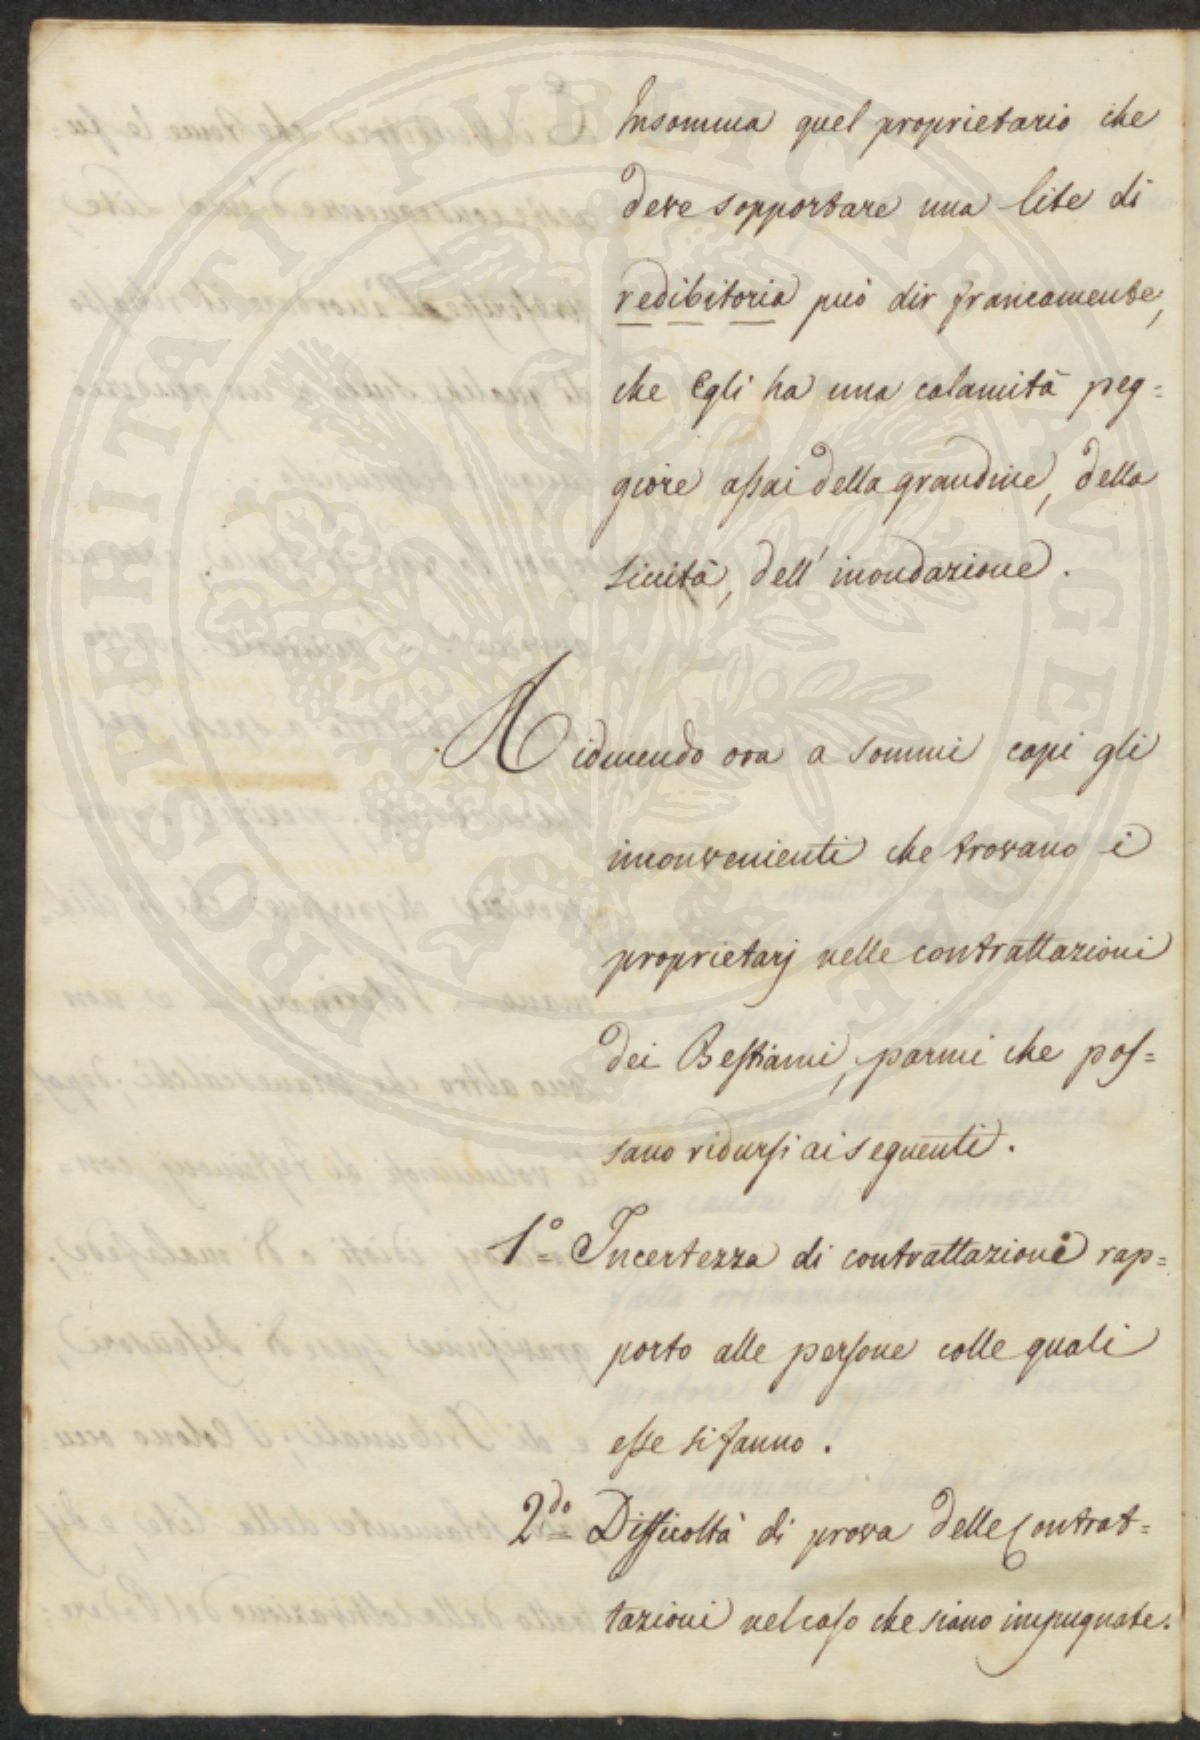 Insomma quel proprietario che
deve sopportare una lite di
redibitoria può dir francamente,
che Egli ha una calamità peg=
giore assai della grandine, della
siccità, dell' inondazione.
Riducendo ora a sommi capi gli
inconvenienti che trovano i
proprietarj nelle contrattazioni
dei Bestiami, parmi che pos=
sano ridursi ai seguenti.
1º= Incertezza di contrattazione rap=
porto alle persone colle quali
esse si fanno.
2do= Difficoltà di prova delle Contrat=
tazioni nel caso che siano impugnate.
PROSPERITATI PUBLICAE AUGENDAE